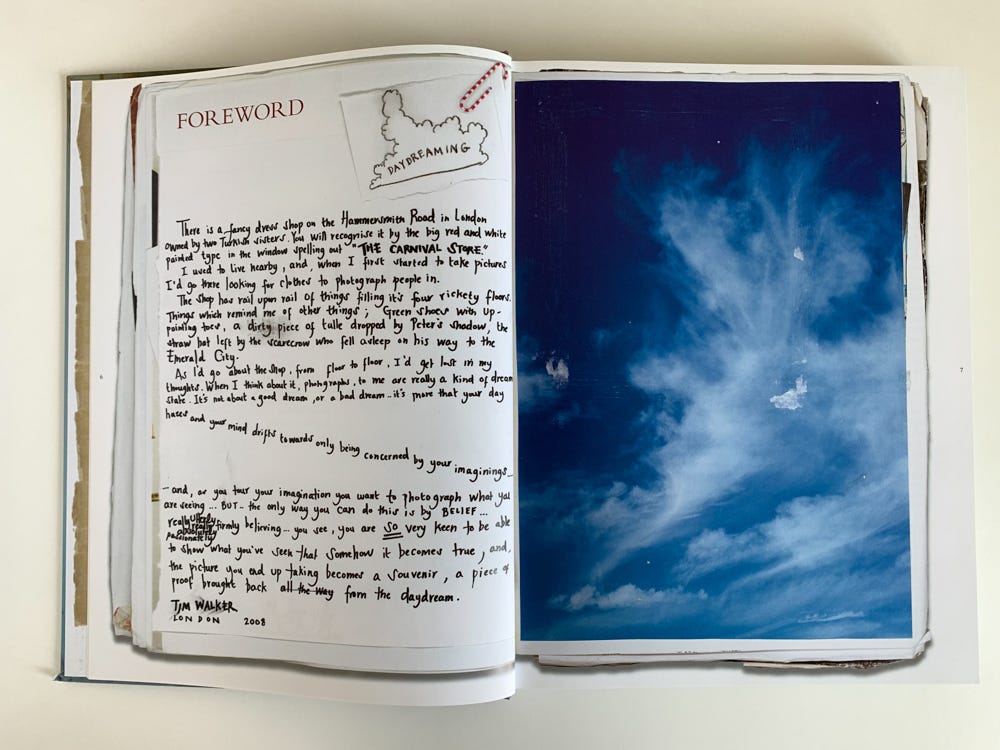 FOREWORD
DAYDREAMING
There is a fancy dress shop on the Hammersmith Road in London
owned by two Turkish sisters. You will recognise it by the big red and white
painted type in the window spelling out "THE CARNIVAL STORE."
I used to live nearby, and, when I first started to take pictures
I'd go there looking for clothes to photograph people in.
The shop has rail upon rail of things filling it's four rickety floors.
Things which remind me of other things; Green shoes with up-
pointing toes, a dirty piece of tulle dropped by Peter's shadow, the
straw hat left by the scarecrow who fell asleep on his way to the
Emerald City.
As I'd go about the shop, from floor to floor, I'd get lost in my
thoughts. When I think about it, photographs, to me are really a kind of dream
state. It's not about a good dream, or a bad dream... it's more that your day
hazes and your mind drifts towards only being concerned by your imaginings—
—and, as you tour your imagination you want to photograph what you
are seeing... BUT... the only way you can do this is by BELIEF...
really utterly really firmly believing... you see, you are SO very keen to be able
absolutely
passionately
to show what you've seen that somehow it becomes true, and,
the picture you end up taking becomes a souvenir, a piece of
proof brought back all the way from the daydream.
TIM WALKER
LONDON 2008
6
7